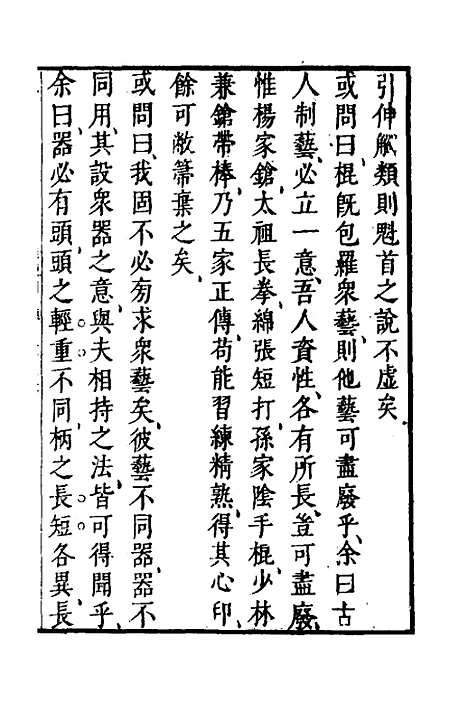 引伸觸類則魁首之說不虛矣
或問曰棍旣包羅衆藝則他藝可盡廢乎余曰古
人制藝必立一意吾人資性各有所長豈可盡廢
惟楊家鎗太祖長拳綿張短打孫家陰手棍少林
兼鎗帶棒乃五家正傳苟能習練精熟得其心印
餘可敝箒棄之矣
或問曰我固不必旁求衆藝矣彼藝不同器器不
同用其設衆器之意與夫相持之法皆可得聞乎
余曰器必有頭頭之輕重不同柄之長短各異長